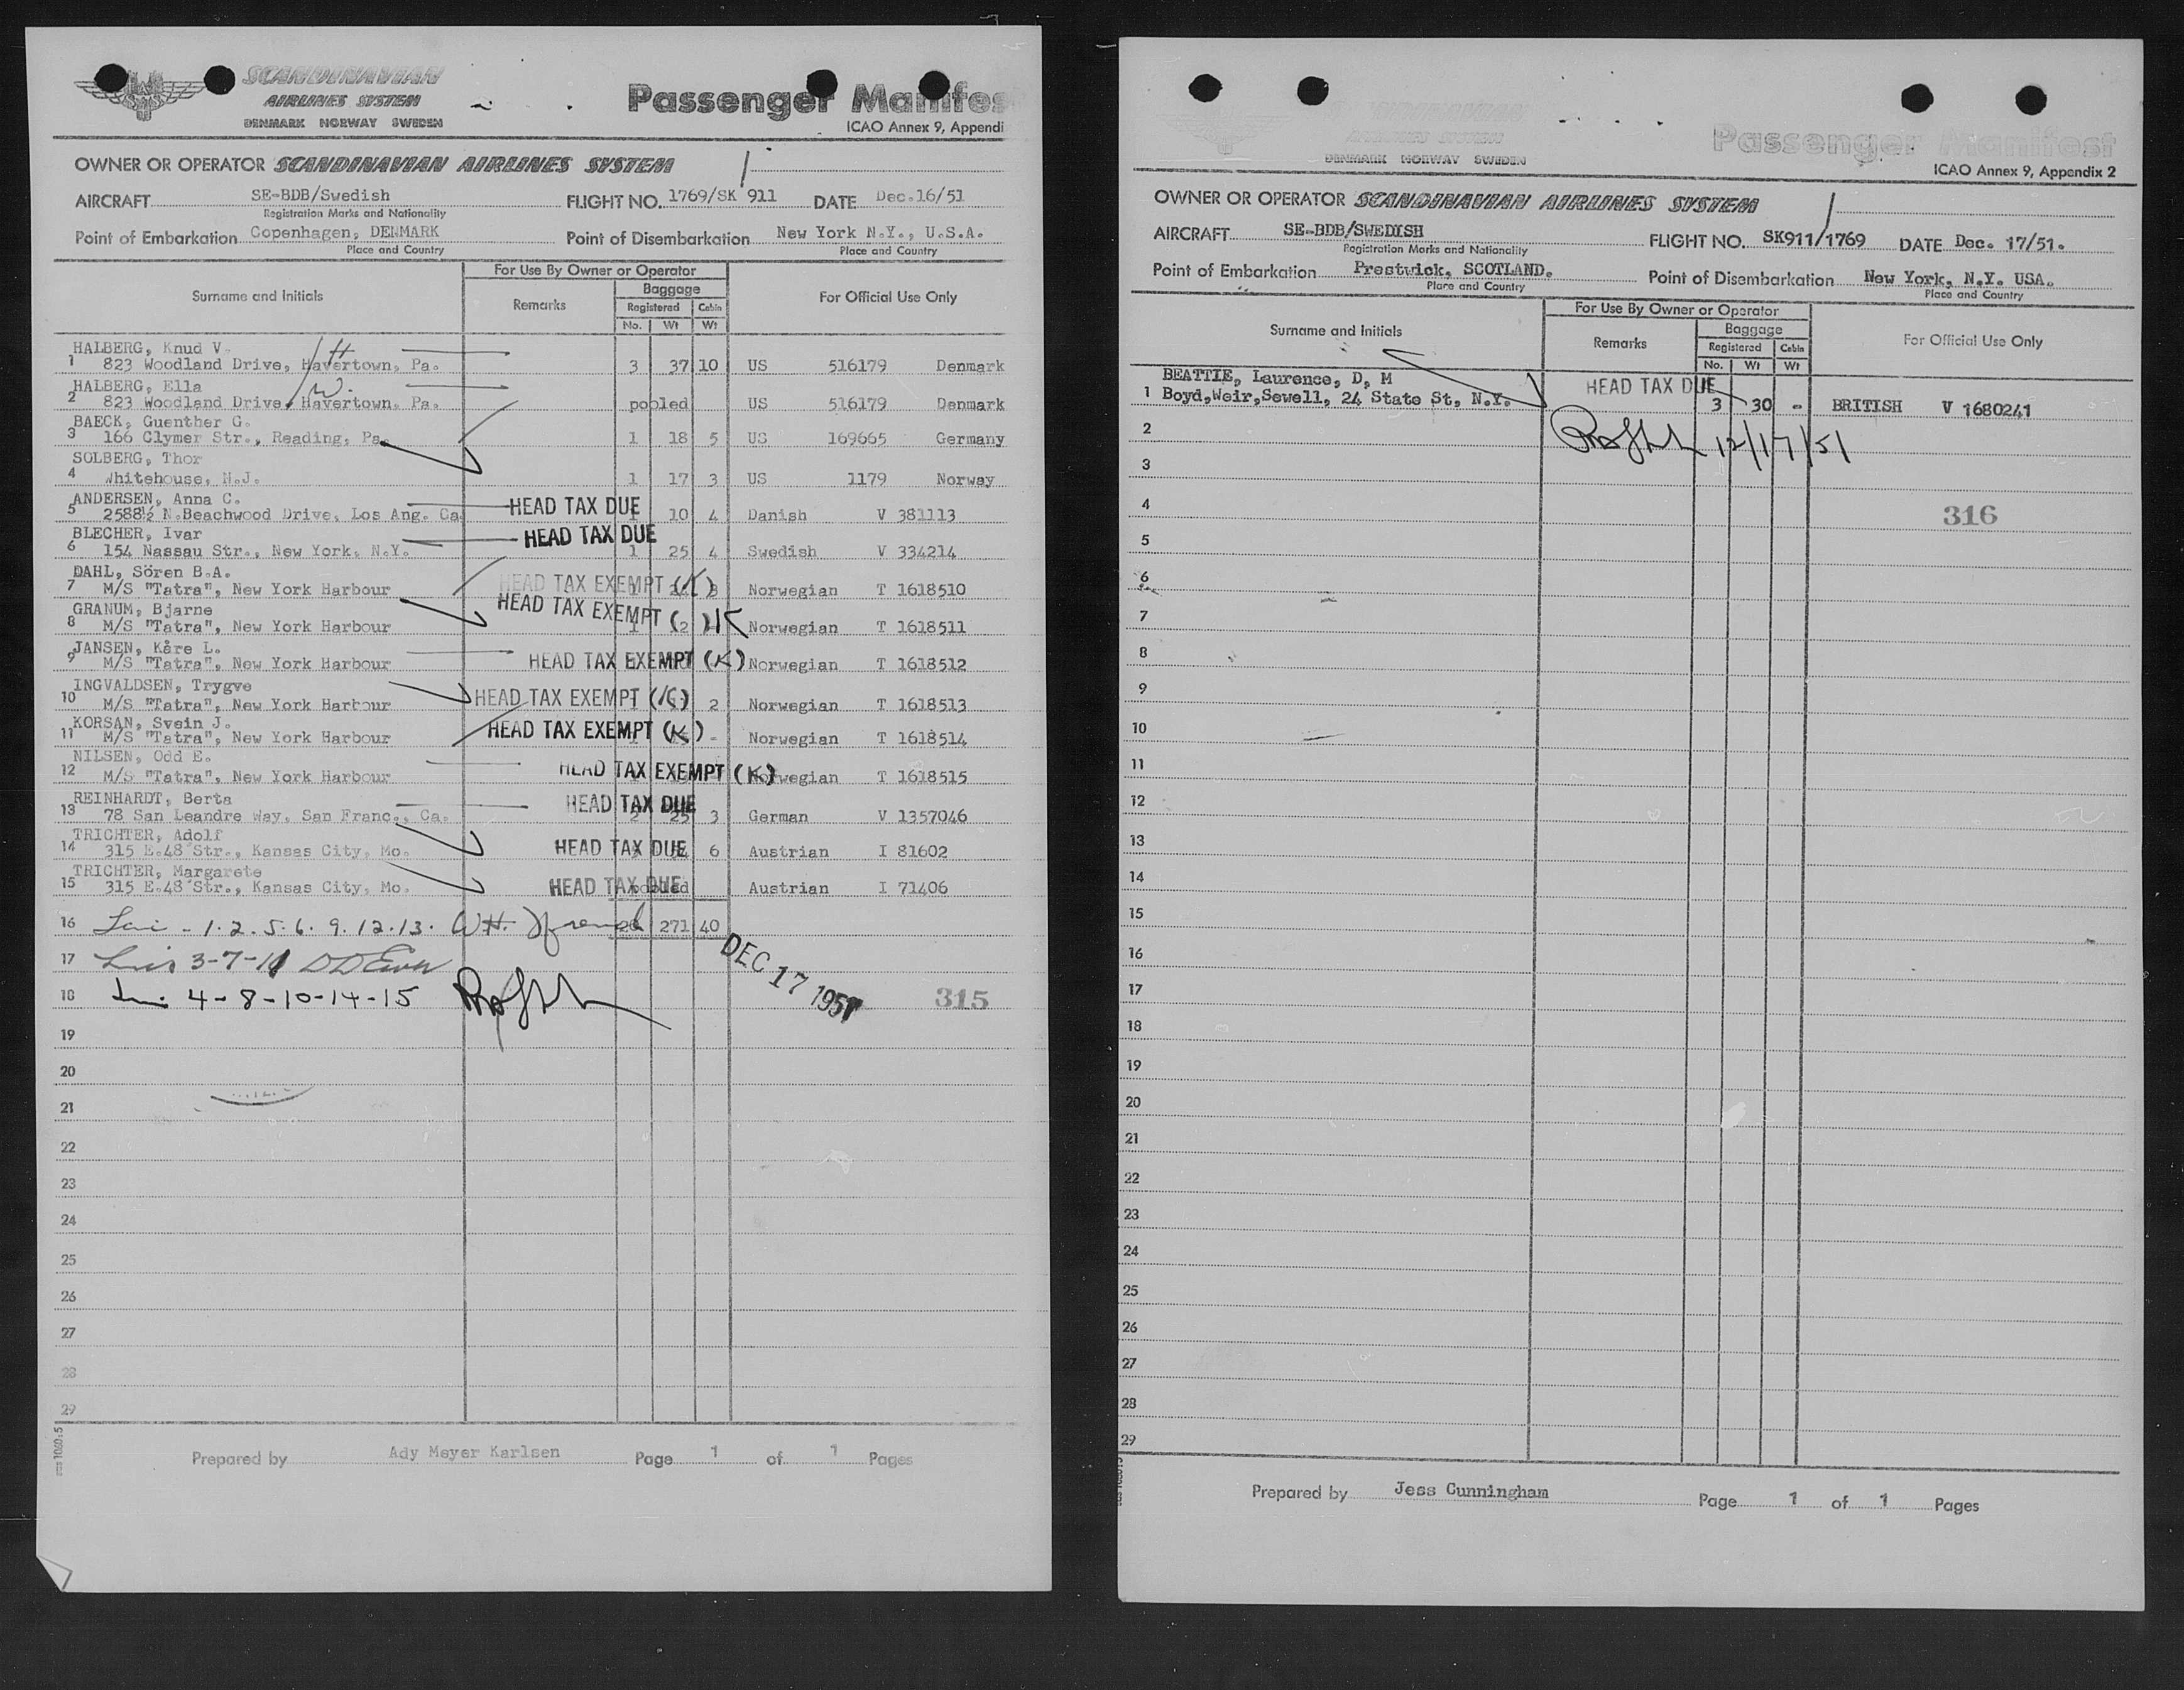 SCANDINAVIAN
AIRLINES SYSTEM
DENMARK NORWAY SWEDEN
Passenger Manifes
ICAO Annex 9, Appendi
OWNER OR OPERATOR SCANDINAVIAN AIRLINES SYSTEM
AIRCRAFT SE-BDB/Swedish FLIGHT NO. 1769/SK 911 DATE Dec.16/51
Registration Marks and Nationality
Point of Embarkation Copenhagen, DENMARK Point of Disembarkation New York N.Y., U.S.A.
Place and Country Place and Country
For Use By Owner or Operator
Surname and Initials Remarks Baggage For Official Use Only
Registered Cabin
No. Wt Wt
HALBERG, Knud V. H
1 823 Woodland Drive, Havertown, Pa. 3 37 10 US 516179 Denmark
HALBERG, Ella W.
2 823 Woodland Drive, Havertown, Pa. pooled US 516179 Denmark
BAECK, Guenther G.
3 166 Clymer Str., Reading, Pa. 1 18 5 US 169665 Germany
SOLBERG, Thor
4 Whitehouse, N.J. 1 17 3 US 1179 Norway
ANDERSEN, Anna C. HEAD TAX DUE
5 2588½ N.Beachwood Drive, Los Ang. Ca. 10 4 Danish V 381113
BLECHER, Ivar HEAD TAX DUE
6 154 Nassau Str., New York, N.Y. 1 25 4 Swedish V 334214
DAHL, Sören B.A. HEAD TAX EXEMPT (K)
7 M/S "Tatra", New York Harbour Norwegian T 1618510
GRANUM, Bjarne HEAD TAX EXEMPT ( ) K
8 M/S "Tatra", New York Harbour Norwegian T 1618511
JANSEN, Kåre L. HEAD TAX EXEMPT (K)
9 M/S "Tatra", New York Harbour Norwegian T 1618512
INGVALDSEN, Trygve HEAD TAX EXEMPT (K)
10 M/S "Tatra", New York Harbour 2 Norwegian T 1618513
KORSAN, Svein J. HEAD TAX EXEMPT (K)
11 M/S "Tatra", New York Harbour - Norwegian T 1618514
NILSEN, Odd E. HEAD TAX EXEMPT (K)
12 M/S "Tatra", New York Harbour Norwegian T 1618515
REINHARDT, Berta HEAD TAX DUE
13 78 San Leandre Way, San Franc., Ca. 2 25 3 German V 1357046
TRICHTER, Adolf HEAD TAX DUE
14 315 E.48 Str., Kansas City, Mo. 6 Austrian I 81602
TRICHTER, Margarete HEAD TAX DUE
15 315 E.48 Str., Kansas City, Mo. pooled Austrian I 71406
16 - 1. 2. 5. 6. 9. 12. 13. 271 40
DEC 17 1951
17 3-7-11
18 4-8-10-14-15 315
19
20
21
22
23
24
25
26
27
28
29
Prepared by Ady Meyer Karlsen Page 1 of 1 Pages
DENMARK NORWAY SWEDEN
Passenger Manifest
ICAO Annex 9, Appendix 2
OWNER OR OPERATOR SCANDINAVIAN AIRLINES SYSTEM
AIRCRAFT SE-BDB/SWEDISH FLIGHT NO. SK911/1769 DATE Dec. 17/51.
Registration Marks and Nationality
Point of Embarkation Prestwick, SCOTLAND. Point of Disembarkation New York, N.Y. USA.
Place and Country Place and Country
For Use By Owner or Operator
Surname and Initials Remarks Baggage For Official Use Only
Registered Cabin
No. Wt Wt
BEATTIE, Laurence, D, M HEAD TAX DUE
1 Boyd,Weir,Sewell, 24 State St, N.Y. 3 30 - BRITISH V 1680241
2 12/17/51
3
4 316
5
6
7
8
9
10
11
12
13
14
15
16
17
18
19
20
21
22
23
24
25
26
27
28
29
Prepared by Jess Cunningham Page 1 of 1 Pages